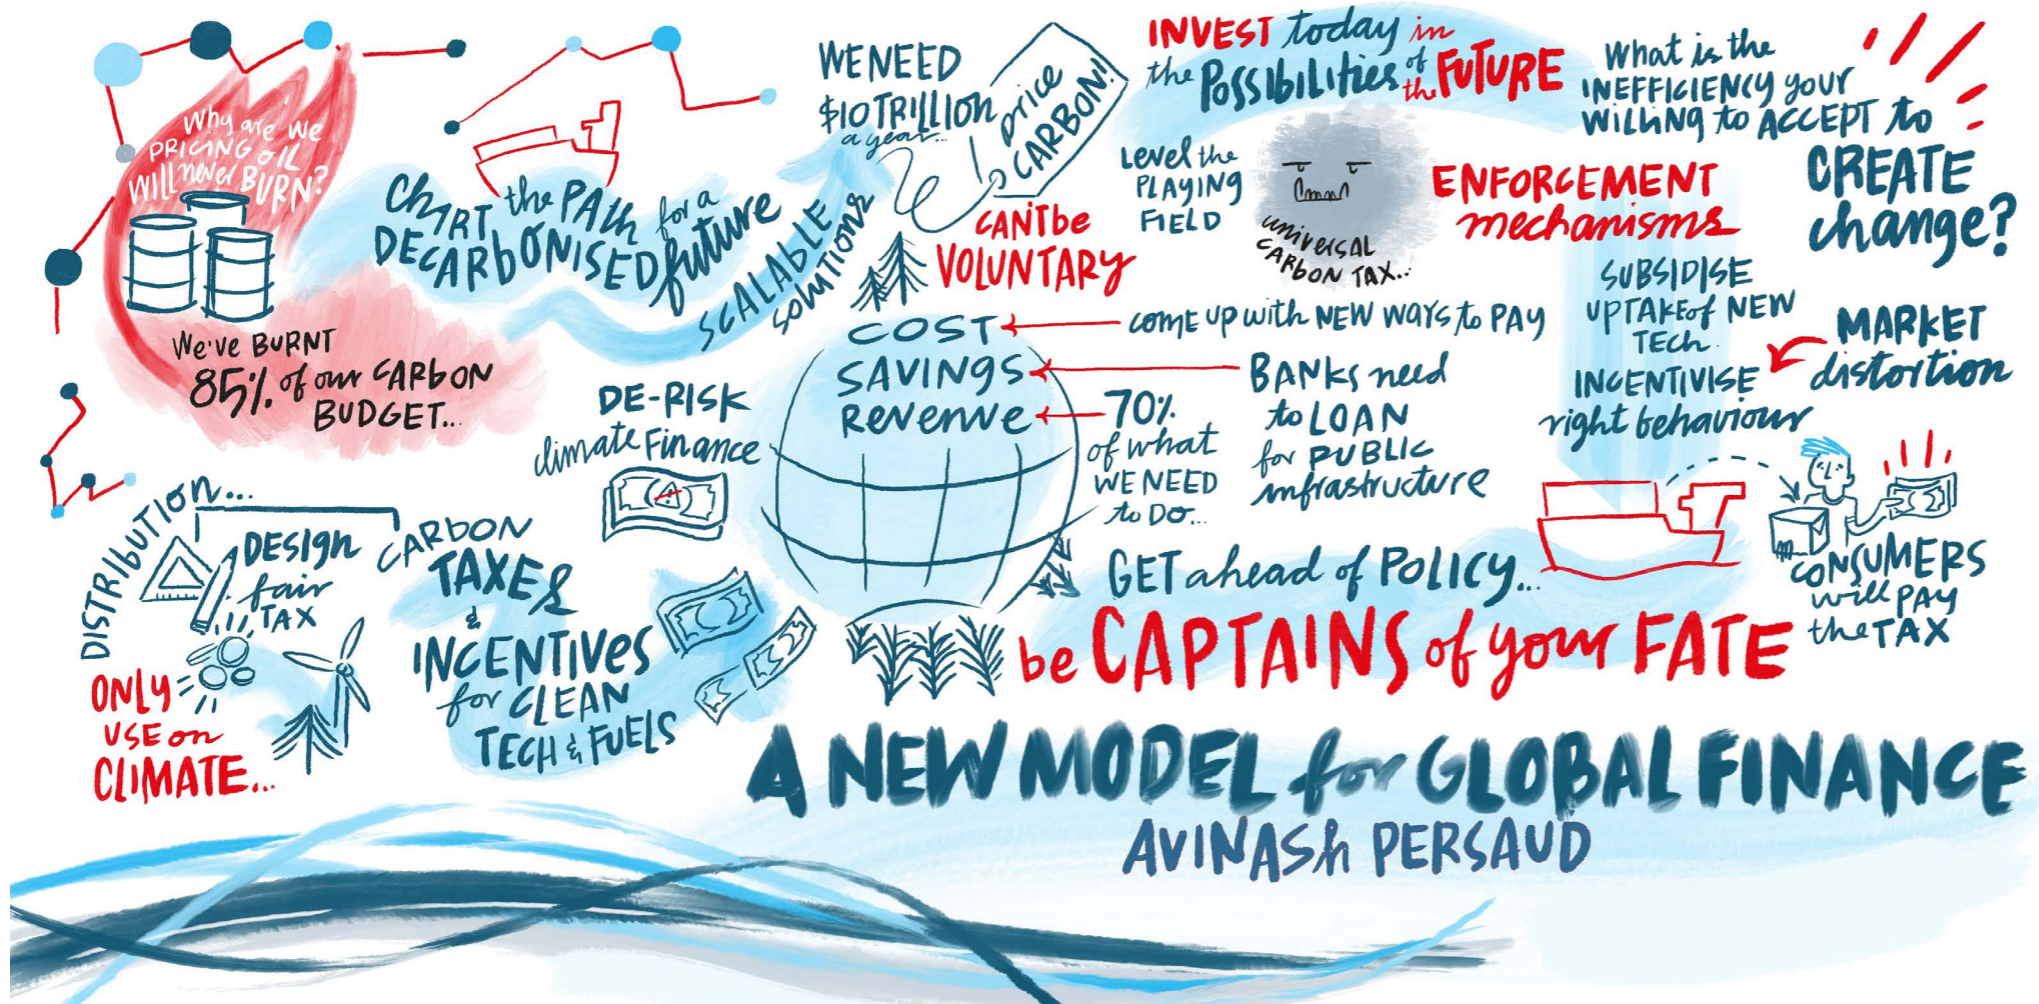 Why are we
PRICING OIL
WILL never BURN?
We've BURNT
85% of our CARBON
BUDGET...
CHART the PATH for a
DECARBONISED future
SCALABLE
solutions
WE NEED
$10 TRILLION
a year...
price
CARBON!
CAN'T be
VOLUNTARY
INVEST today in
the POSSIBILITIES of
the FUTURE
LEVEL the
PLAYING
FIELD
UNIVERSAL
CARBON TAX...
ENFORCEMENT
mechanisms
What is the
INEFFICIENCY your
WILLING to ACCEPT to
CREATE
change?
SUBSIDISE
UPTAKE of NEW
TECH.
INCENTIVISE
right behaviour
MARKET
distortion
COST
SAVINGS
Revenue
COME UP with NEW WAYS to PAY
BANKS need
to LOAN
for PUBLIC
infrastructure
70%
of what
WE NEED
to DO...
DE-RISK
climate Finance
DISTRIBUTION...
DESIGN
fair
TAX
ONLY
USE on
CLIMATE...
CARBON
TAXES
&
INCENTIVES
for CLEAN
TECH & FUELS
GET ahead of POLICY...
be CAPTAINS of your FATE
CONSUMERS
will PAY
the TAX
A NEW MODEL for GLOBAL FINANCE
AVINASH PERSAUD